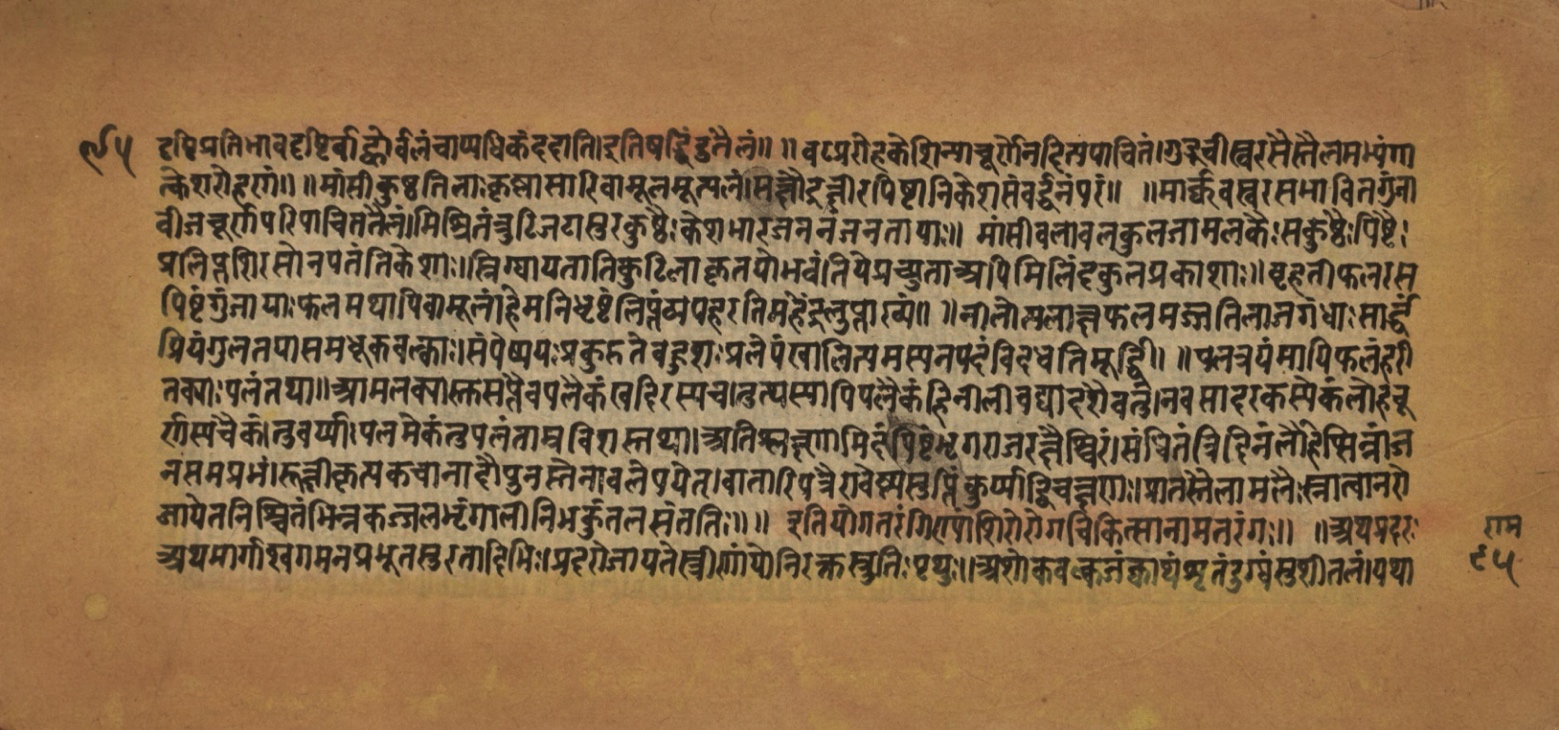 ९५ दृष्टिप्रतिभावदृष्टिर्बाह्वोर्बलंचाप्यधिकंददाति।इतिषड्बिंदुतैलं॥ ॥वटप्ररोहकेशिन्याचूर्णेनहितपाचितं।गुडूचीस्वरसैस्तैलमभ्यंगा
त्केशरोहणं॥ ॥मांसीकुष्ठतिलाःकृष्णासारिवामूलमूत्पलं।सक्षौद्रक्षीरपिष्टानिकेशसंवर्द्धनंपरं॥ ॥मार्क्कवस्वरसभावितगुंजा
बीजचूर्णपरिपाचिततैलं।मिश्रितंत्रुटिजटासुरकुष्ठैःकेशभारजननंजनतायाः॥ मांसीबलाबलकुलजामलकैःसकुष्ठैःपिष्टैः
प्रलिप्तशिरसोनपतंतिकेशाः।स्निग्धायतातिकुटिलाकृतयोभवंतियेप्रच्युताअपिमिलिंदकुलप्रकाशाः॥बृहतीफलरस
पिष्टंगुंजायाःफलमथापिवामूलं।हेमनिघृष्टंलिप्तंव्यपहरतिमहेंद्रलुप्ताख्यं॥ ॥नीलोत्पलाक्षफलमज्जतिलाजगंधाःसार्द्धं
प्रियंगुलतयासमधूकवल्काः।संपेष्ययःप्रकुरुतेबहुशःप्रलेपंखालित्यमस्यनपदंविदधतिमूर्द्ध्नि॥ ॥पलत्रयंमापिफलंहरी
तक्याःपलंतथा॥आमलक्यास्तसप्तैवपलैकंखदिरस्यच।तुत्थस्यापिपलैकंहिनीलीवद्यादशैवतु।नवसादरकस्यैकंलोहचू
र्णस्यचैकं।तुवर्य्या।पलमेकंतुपलंताम्रविशस्तथा।अतिश्लक्ष्णमिदंपिष्टंभृंगराजरसैश्चिरं।संचितंत्रिदिनंलौहेस्निन्नांज
नसमप्रभं।रूक्षीकृत्यकचानादौपुनस्तेनावलेपयेत्।वातारिपत्रैरावेष्ट्यसुप्तिंकुर्य्याद्विचक्षणः।प्रातस्तैलामलैःस्नात्वानरो
जायेतनिश्चितंभिन्नकज्जलभृंगालीनिभकुंतलसंततिः॥ ॥ इतियोगतरंगिण्यांशिरोरोगचिकित्सानामतरंगः॥ ॥अथप्रदरः
अथमार्गाध्वगमनप्रभूतसुरतादिभिः।प्रदरोजायतेस्त्रीणांयोनिरक्तस्रुतिःपृथुः॥अशोकवल्कजंक्वाथंशृतंदुग्धंसुशीतलं।यथा
राम
९५